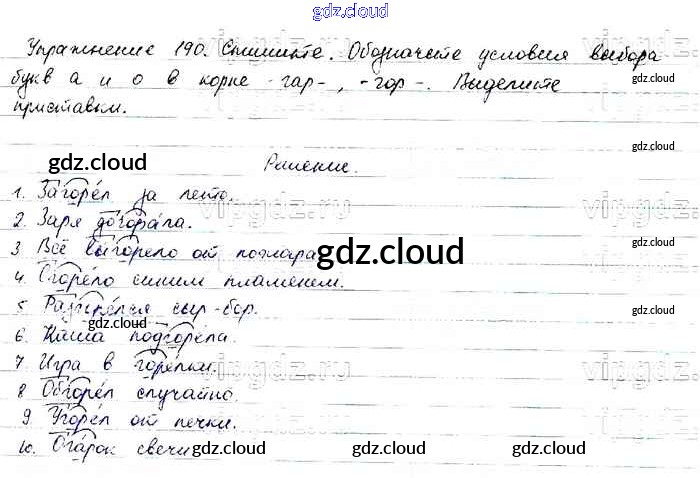 gdz.cloud
Упражнение 190. Спишите. Обозначьте условия выбора
букв а и о в корне -гар-, -гор-. Выделите
приставки.
gdz.cloud
gdz.cloud
gdz.cloud
Решение.
1. Загорел за лето.
2. Заря догорала.
3 Всё выгорело от пожара
gdz.cloud
4. Сгорело синим пламенем.
5 Разгорелся сыр-бор.
gdz.cloud
6. Каша подгорела.
7 Игра в горелки.
8 Обгорел случайно.
9 Угорел от печки.
10. Огарок свечи
gdz.cloud
gdz.cloud
gdz.cloud
vipgdz.ru